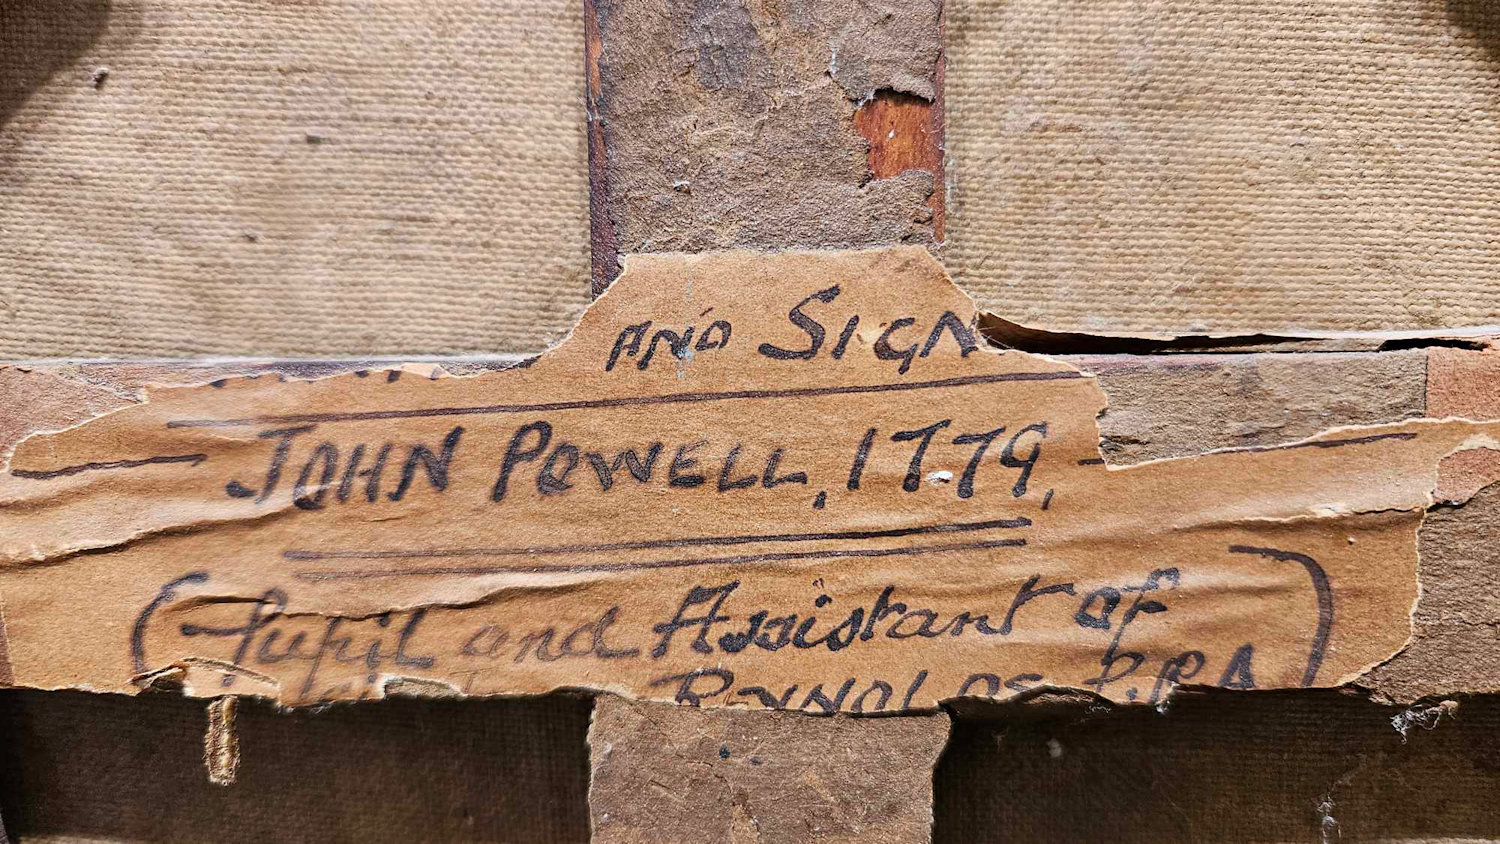 AND SIGN
JOHN POWELL, 1779,
(Pupil and Assistant of
REYNOLDS P.RA)